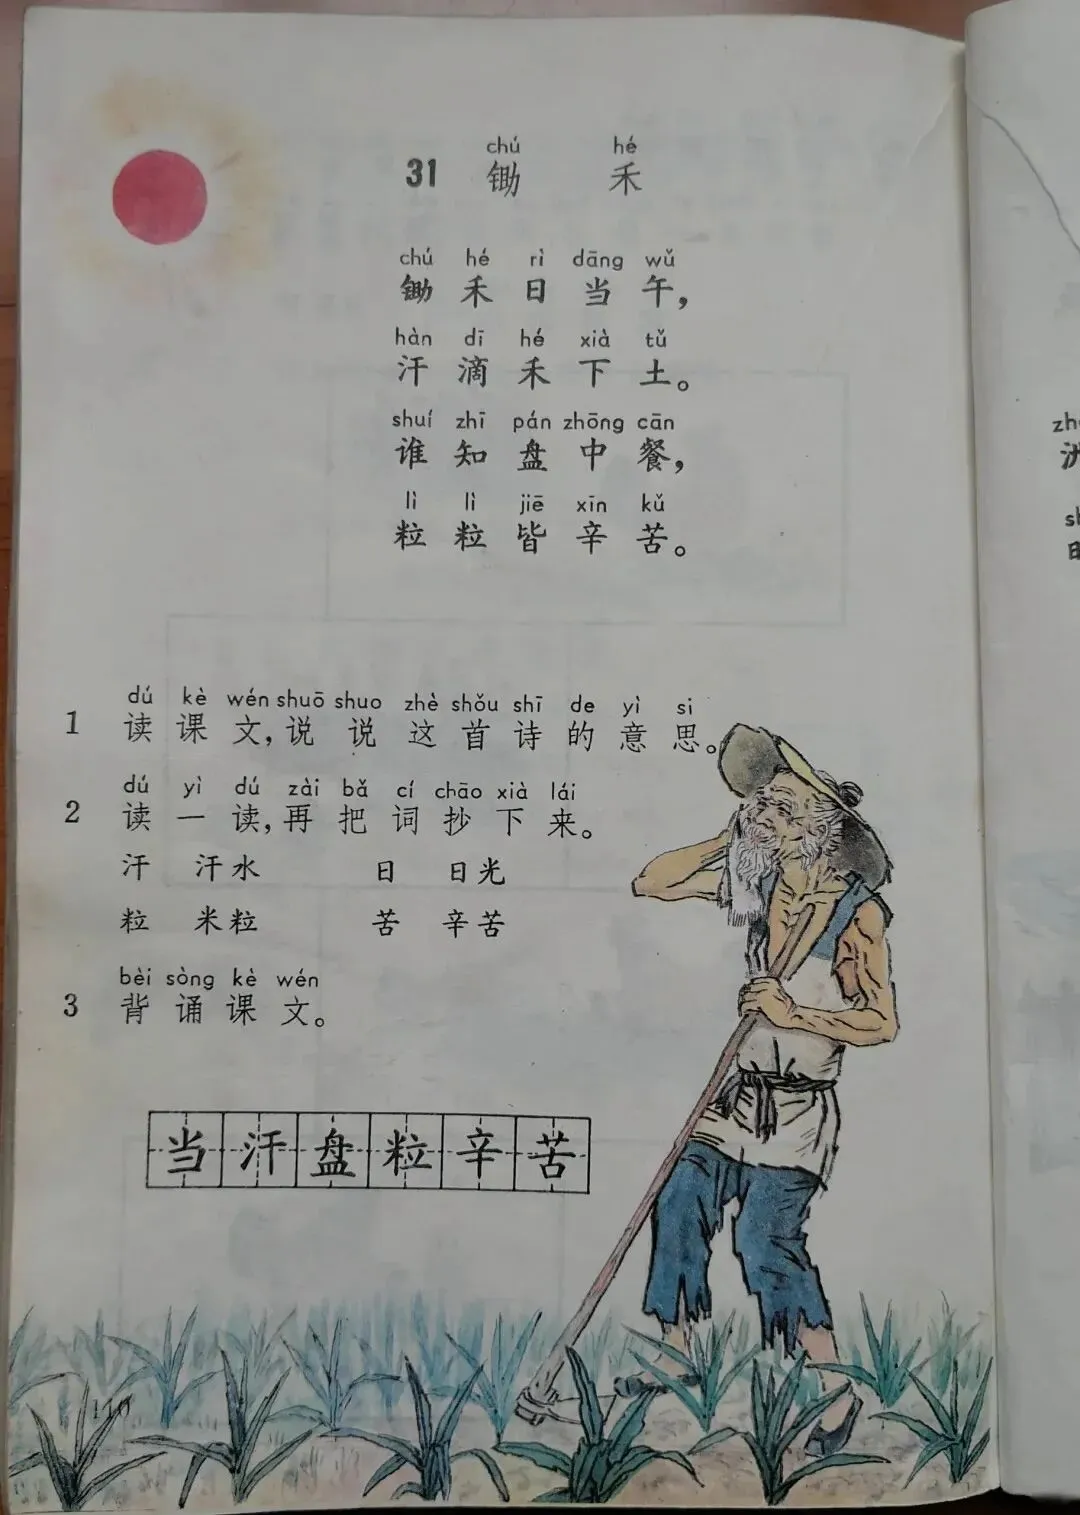 chú hé
31 锄 禾
chú hé rì dāng wǔ
锄 禾 日 当 午，
hàn dī hé xià tǔ
汗 滴 禾 下 土。
shuí zhī pán zhōng cān
谁 知 盘 中 餐，
lì lì jiē xīn kǔ
粒 粒 皆 辛 苦。
dú kè wén shuō shuo zhè shǒu shī de yì si
1 读 课 文，说 说 这 首 诗 的 意 思。
dú yì dú zài bǎ cí chāo xià lái
2 读 一 读，再 把 词 抄 下 来。
汗 汗水 日 日光
粒 米粒 苦 辛苦
bèi sòng kè wén
3 背 诵 课 文。
当 汗 盘 粒 辛 苦
110